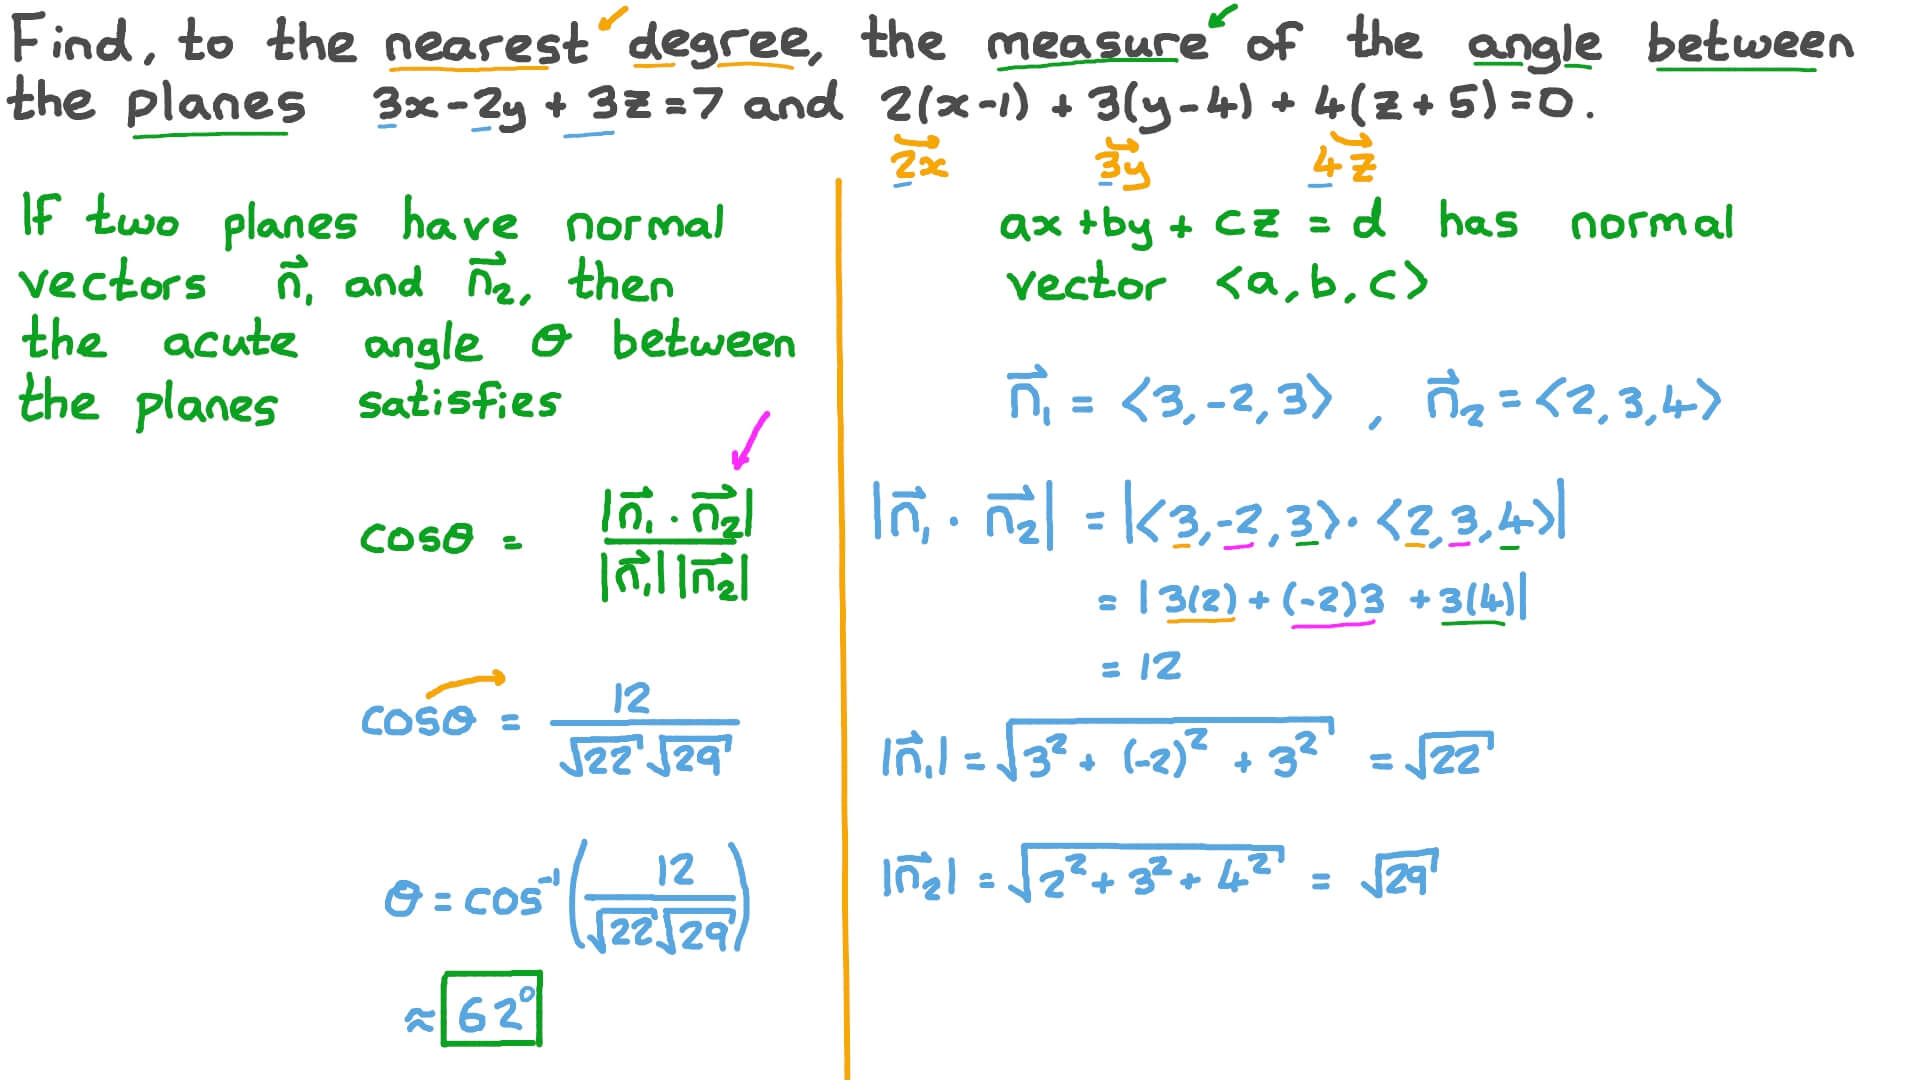 Find, to the nearest degree, the measure of the angle between
the planes 3x-2y + 3z=7 and 2(x-1) + 3(y-4) + 4(z+5)=0.
2x 3y 4z
If two planes have normal
vectors n⃗₁ and n⃗₂, then
the acute angle θ between
the planes satisfies
cosθ = |n⃗₁ · n⃗₂| / |n⃗₁| |n⃗₂|
cosθ = 12 / √22 √29
θ = cos⁻¹ (12 / √22 √29)
≈ 62°
ax+by + cz = d has normal
vector <a, b, c>
n⃗₁ = <3,-2,3> , n⃗₂ = <2,3,4>
|n⃗₁ · n⃗₂| = |<3,-2,3> · <2,3,4>|
= |3(2) + (-2)3 + 3(4)|
= 12
|n⃗₁| = √3² + (-2)² + 3² = √22
|n⃗₂| = √2² + 3² + 4² = √29